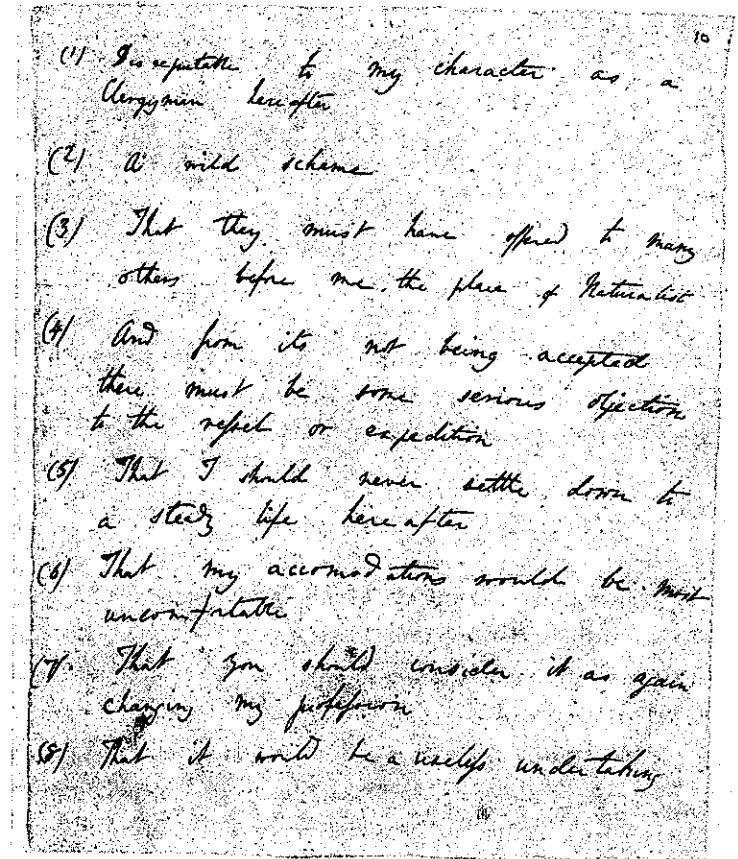 10
(1) Disreputable to my character as a
Clergyman hereafter
(2) A wild scheme
(3) That they must have offered to many
others before me, the place of Naturalist
(4) And from its not being accepted
there must be some serious objection
to the vessel or expedition
(5) That I should never settle down to
a steady life hereafter
(6) That my accomodations would be most
uncomfortable
(7) That you should consider it as again
changing my profession
(8) That it would be a useless undertaking